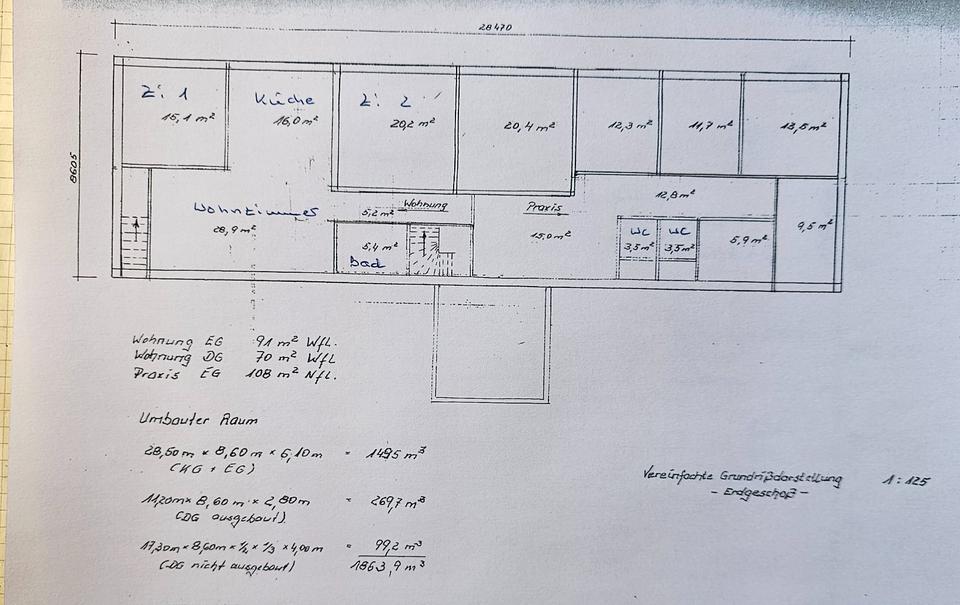 28470
8605
Zi. 1
15,1 m²
Küche
16,0 m²
Zi. 2
20,2 m²
20,4 m²
12,3 m²
11,7 m²
13,5 m²
Wohnzimmer
28,9 m²
5,2 m²
Wohnung
Praxis
15,0 m²
12,8 m²
9,5 m²
5,4 m²
Bad
WC
3,5 m²
WC
3,5 m²
5,9 m²
Wohnung EG 91 m² Wfl.
Wohnung DG 70 m² Wfl
Praxis EG 108 m² Nfl.
Umbauter Raum
28,50 m × 8,60 m × 6,10 m = 1495 m³
(KG + EG)
11,20 m × 8,60 m × 2,80 m = 269,7 m³
(DG ausgebaut)
17,30 m × 8,60 m × ½ × ⅓ × 4,00 m = 99,2 m³
(DG nicht ausgebaut) 1863,9 m³
Vereinfachte Grundrißdarstellung 1 : 125
- Erdgeschoß -